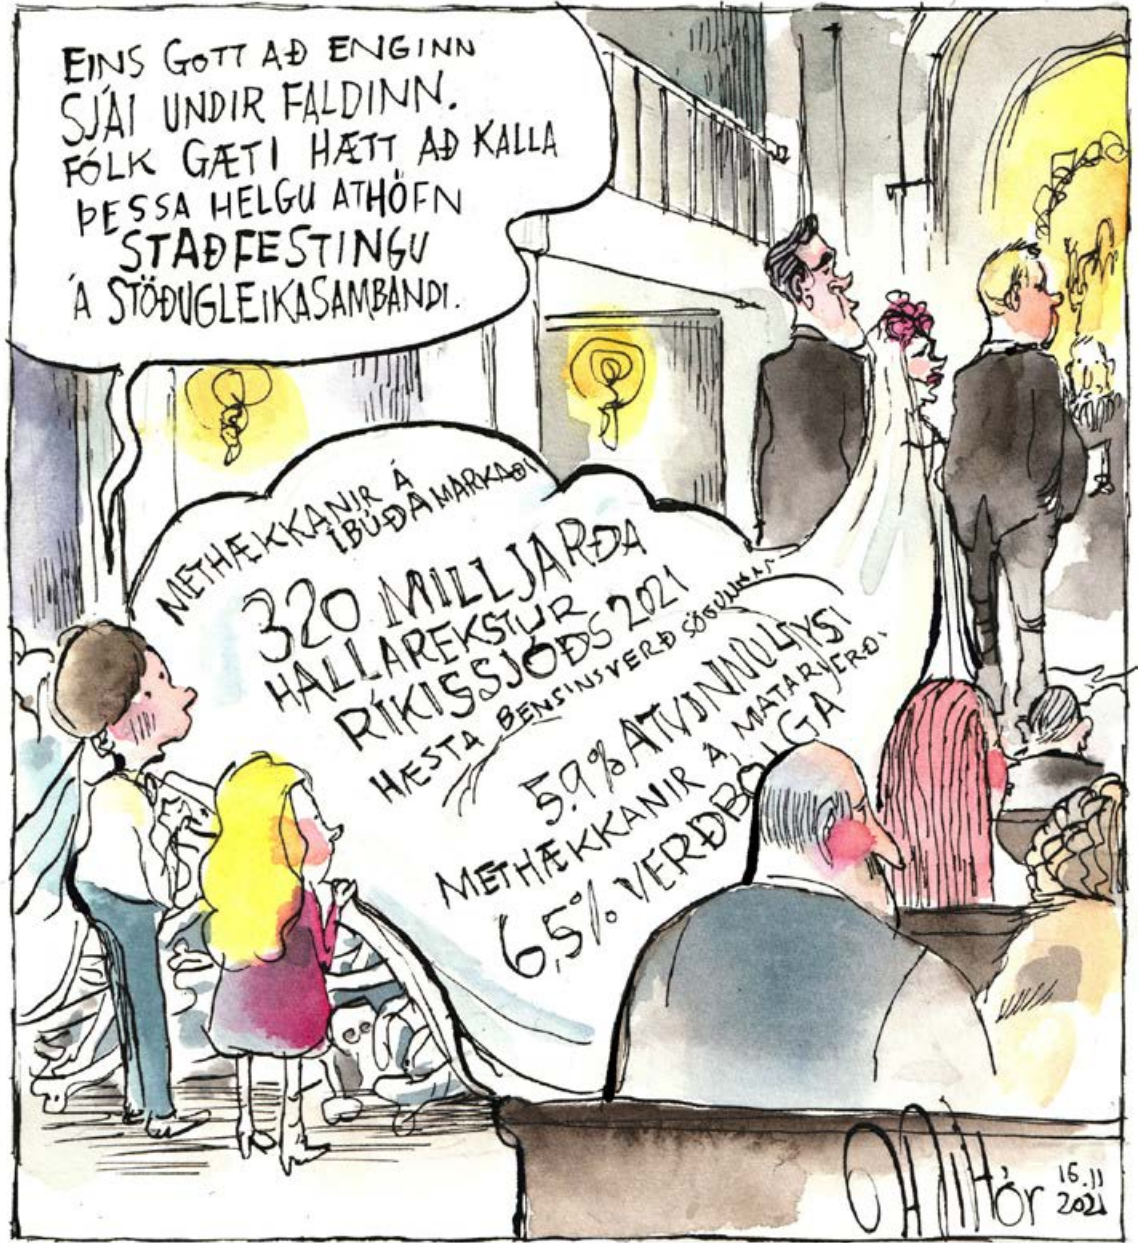 EINS GOTT AÐ ENGINN
SJÁI UNDIR FALDINN.
FÓLK GÆTI HÆTT AÐ KALLA
ÞESSA HELGU ATHÖFN
STAÐFESTINGU
Á STÖÐUGLEIKASAMBANDI.
METHÆKKANIR Á
ÍBÚÐAMARKAÐI
320 MILLJARÐA
HALLAREKSTUR
RÍKISSJÓÐS 2021
HÆSTA BENSINSVERÐ SÖGUNNAR
5.9% ATVINNULEYSI
METHÆKKANIR Á MATARVERÐI.
6,5% VERÐBÓLGA
15.11
2021